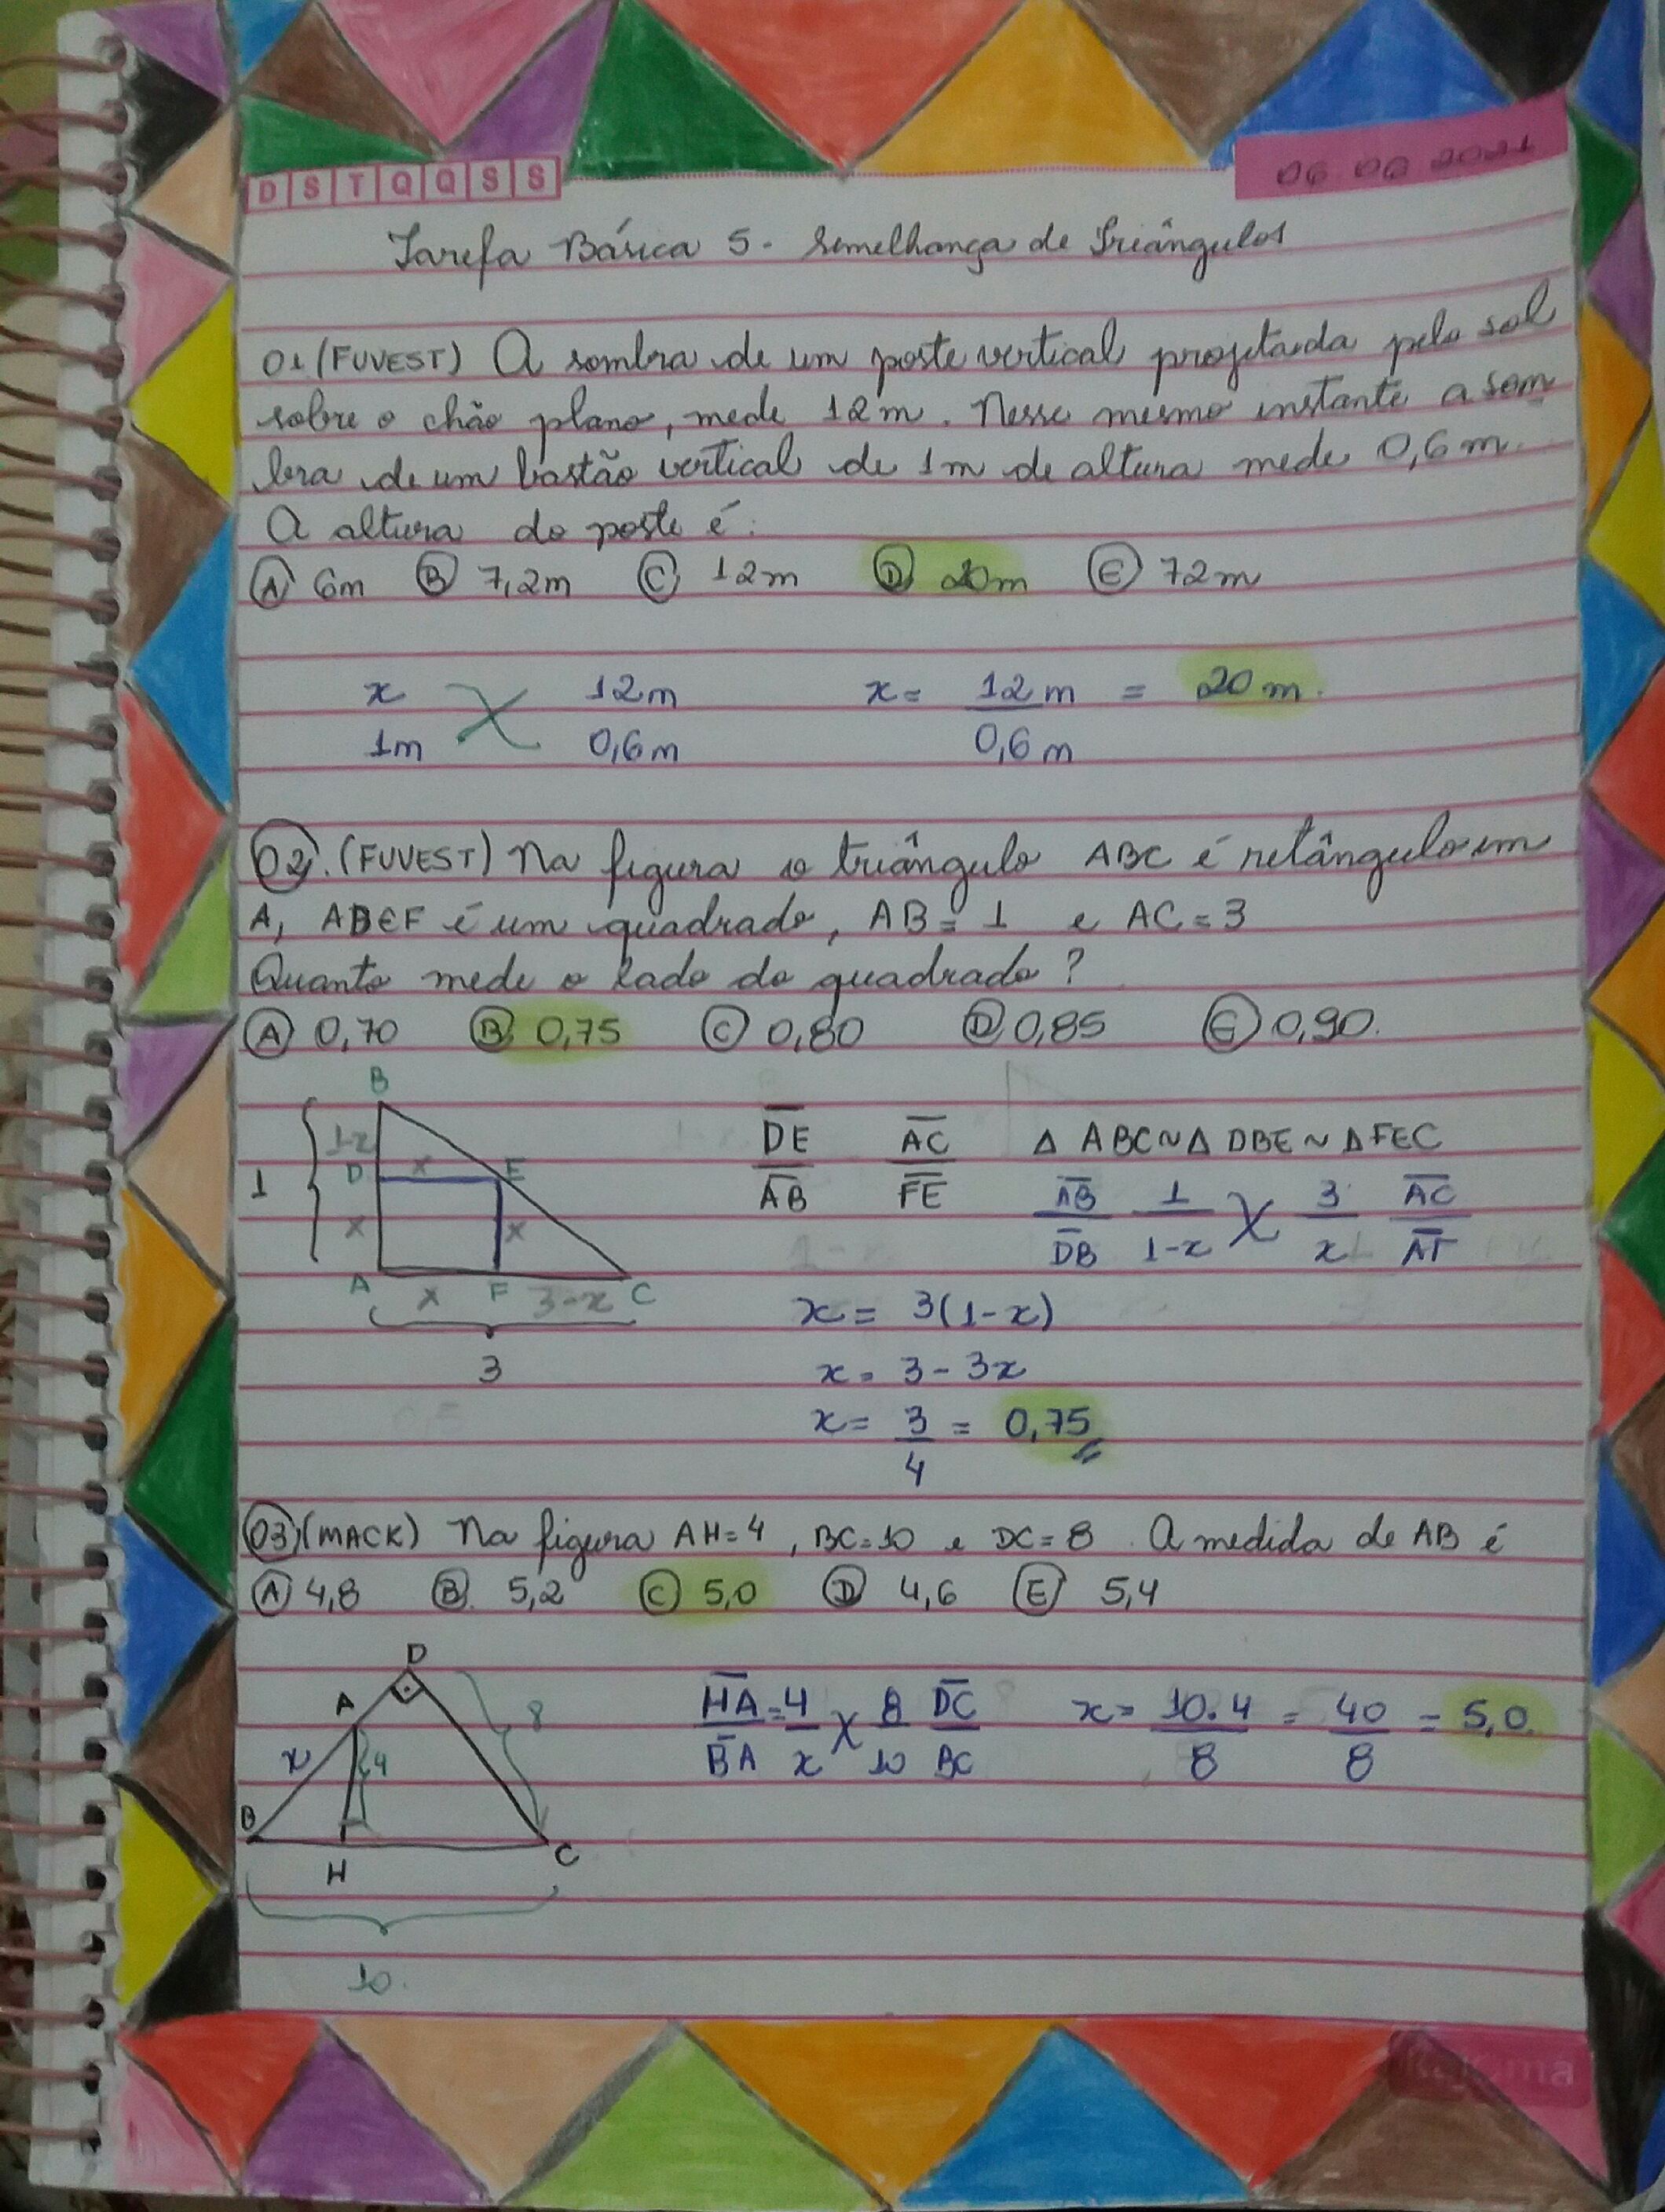 D S T Q Q S S
06 06 2021
Tarefa Básica 5 - Semelhança de Triângulos
01 (FUVEST) A sombra de um poste vertical, projetada pelo sol
sobre o chão plano, mede 12m. Nesse mesmo instante a som
bra de um bastão vertical de 1m de altura mede 0,6m.
A altura do poste é:
A 6m B 7,2m C 12m D 20m E 72m
x 12m x = 12m = 20m.
1m 0,6m 0,6m
02. (FUVEST) Na figura o triângulo ABC é retângulo em
A, ABEF é um quadrado, AB = 1 e AC = 3
Quanto mede o lado do quadrado?
A 0,70 B 0,75 C 0,80 D 0,85 E 0,90.
B
1-x
D x E
1
x x
A x F 3-x C
3
DE AC Δ ABC ~ Δ DBE ~ Δ FEC
AB FE
AB 1 3 AC
DB 1-x x
x = 3(1-x)
x = 3 - 3x
x = 3 = 0,75
4
03 (MACK) Na figura AH=4, BC=10 e DC=8. A medida de AB é
A 4,8 B 5,2 C 5,0 D 4,6 E 5,4
D
A
8
x 4
B
H C
10.
HA = 4 8 DC x = 10.4 = 40 = 5,0
BA x 10 BC 8 8